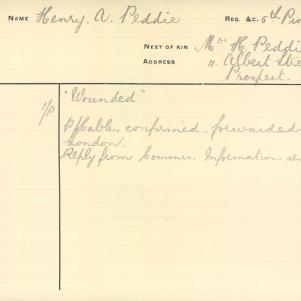 NAME Henry. A. Peddie REG. &C. 5th Pio
NEXT OF KIN Mrs H. Peddi
ADDRESS 11. Albert Stre
Prospect.
"Wounded"
Cable. confirmed. forwarded
London.
Reply from Commrs. Information re